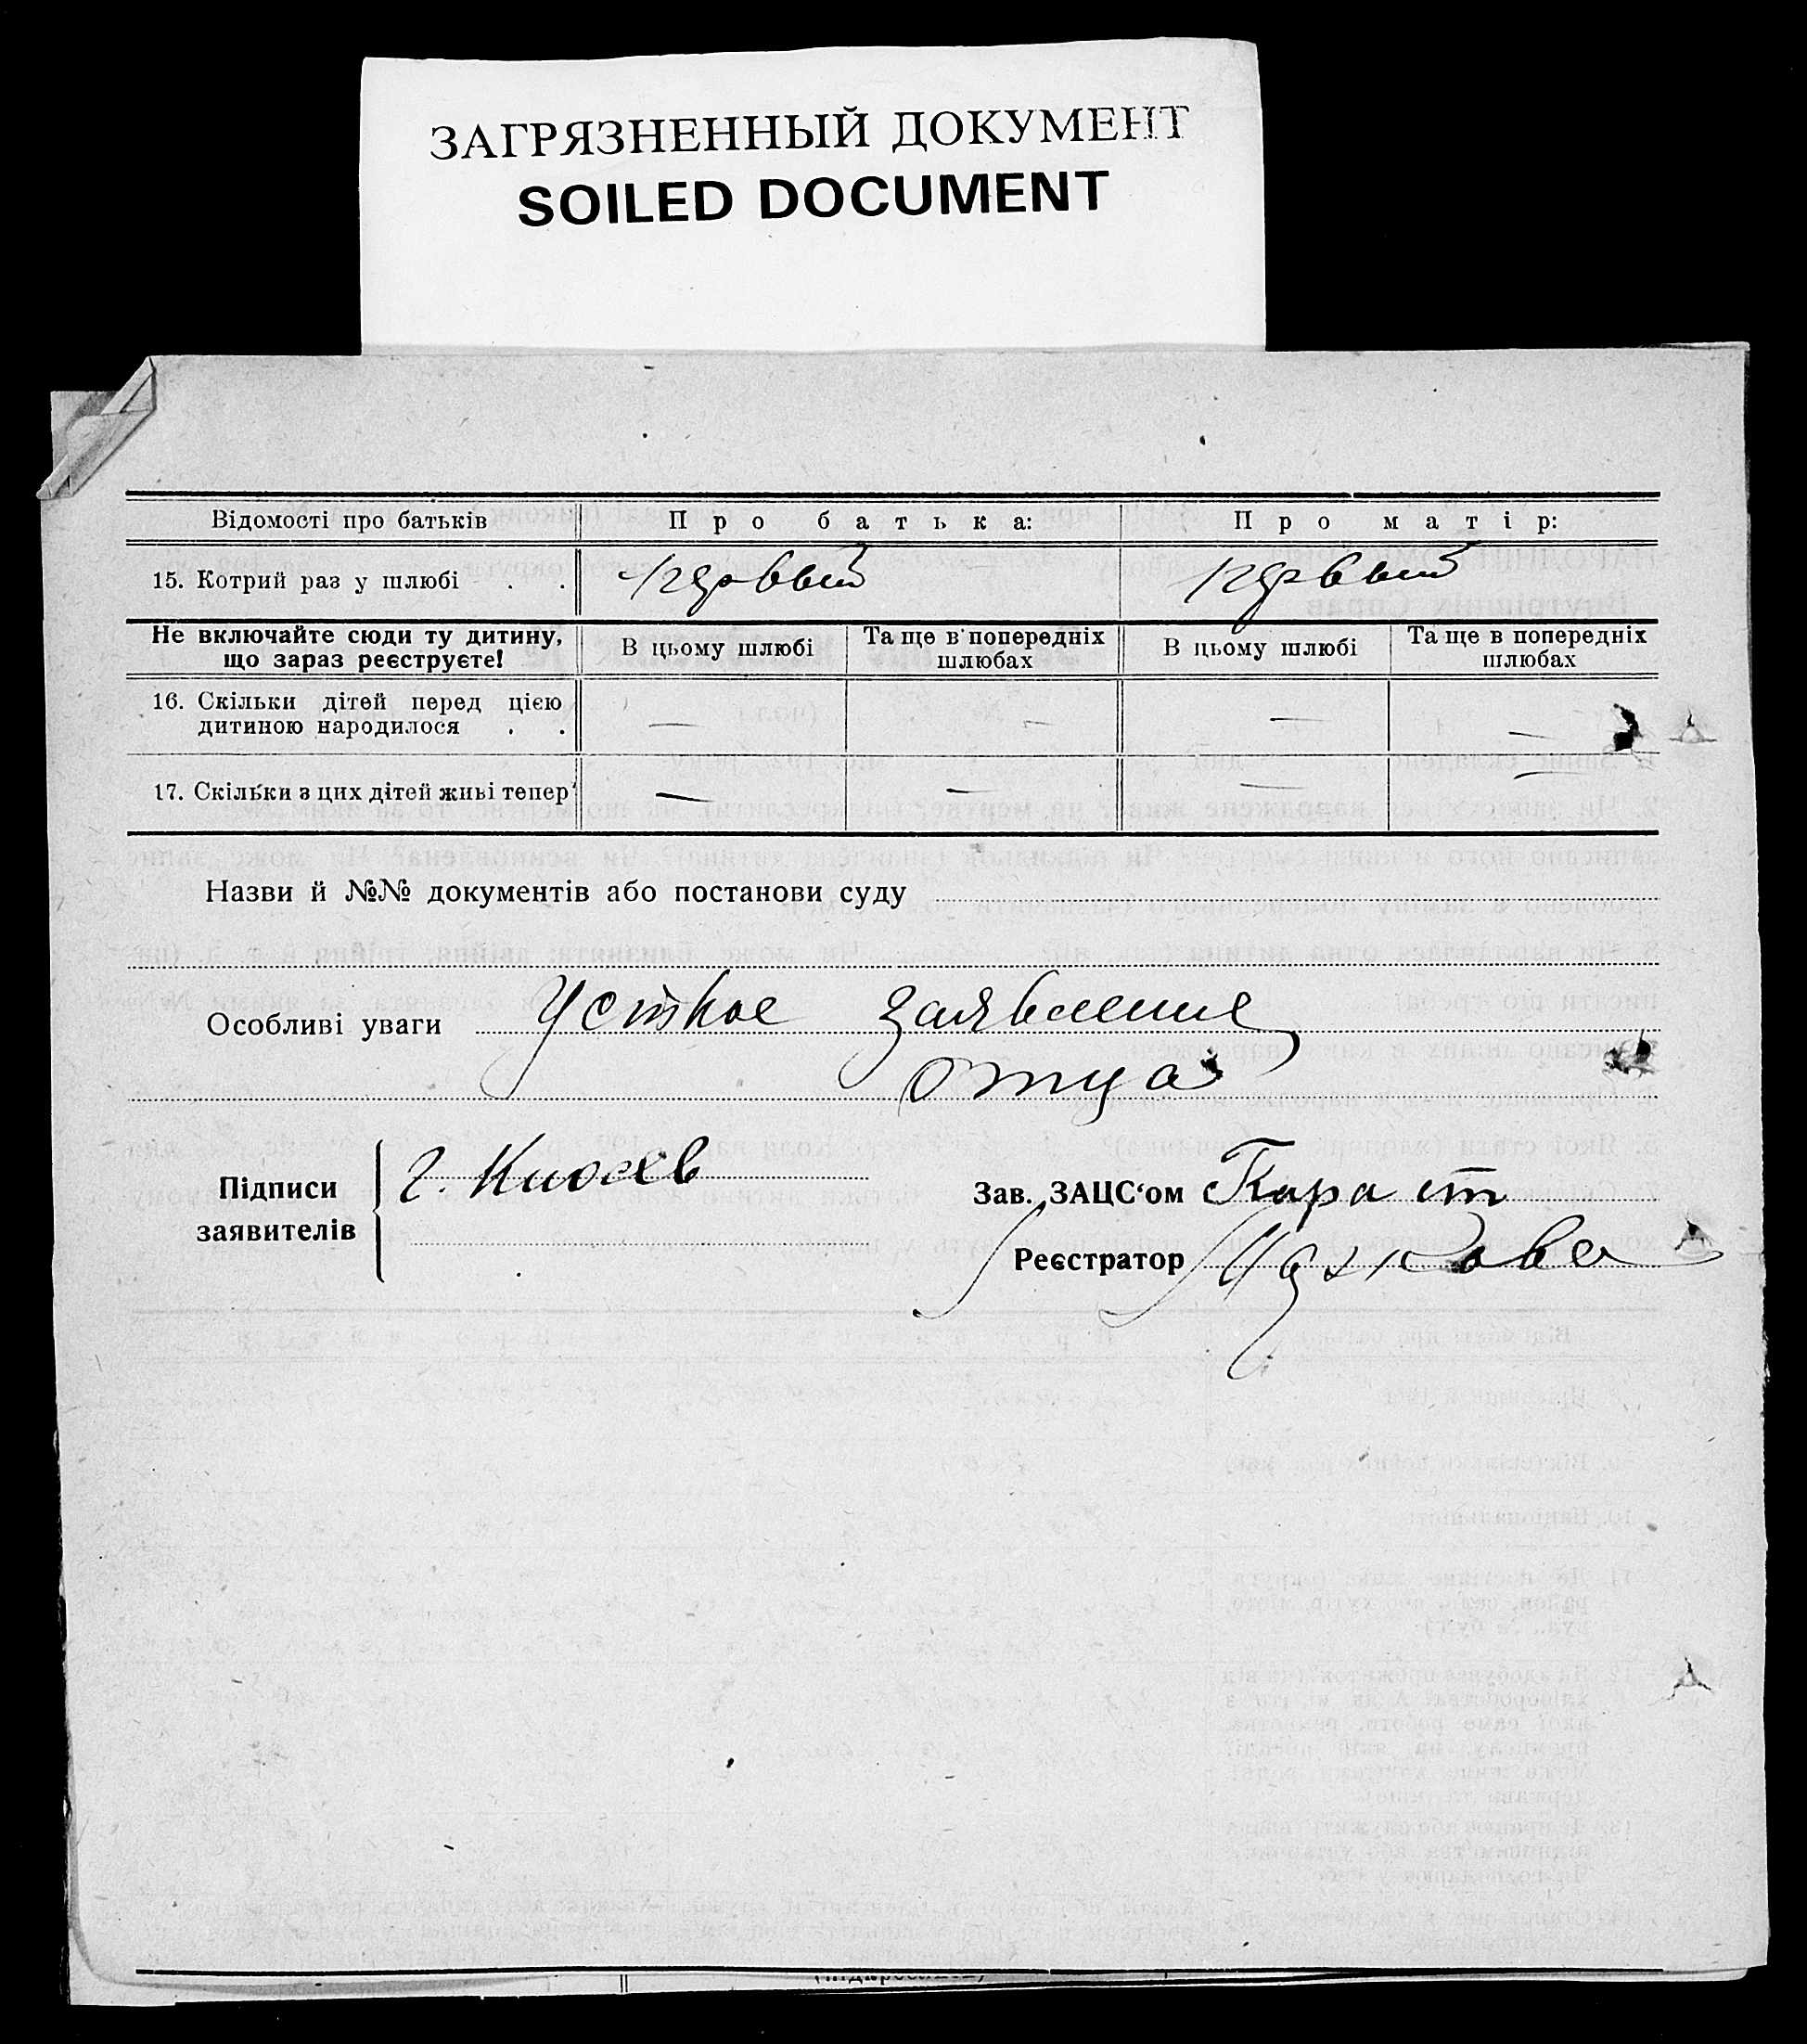 ЗАГРЯЗНЕННЫЙ ДОКУМЕНТ
SOILED DOCUMENT
Відомості про батьків Про батька: Про матір:
15. Котрий раз у шлюбі . . первый первый
Не включайте сюди ту дитину, що зараз реєструєте! В цьому шлюбі Та ще в попередніх шлюбах В цьому шлюбі Та ще в попередніх шлюбах
16. Скільки дітей перед цією дитиною народилося . . — — — —
17. Скільки з цих дітей живі тепер — — — —
Назви й №№ документів або постанови суду
Особливі уваги Устное заявление
отца
Підписи заявителів г.
Зав. ЗАЦС‘ом
Реєстратор